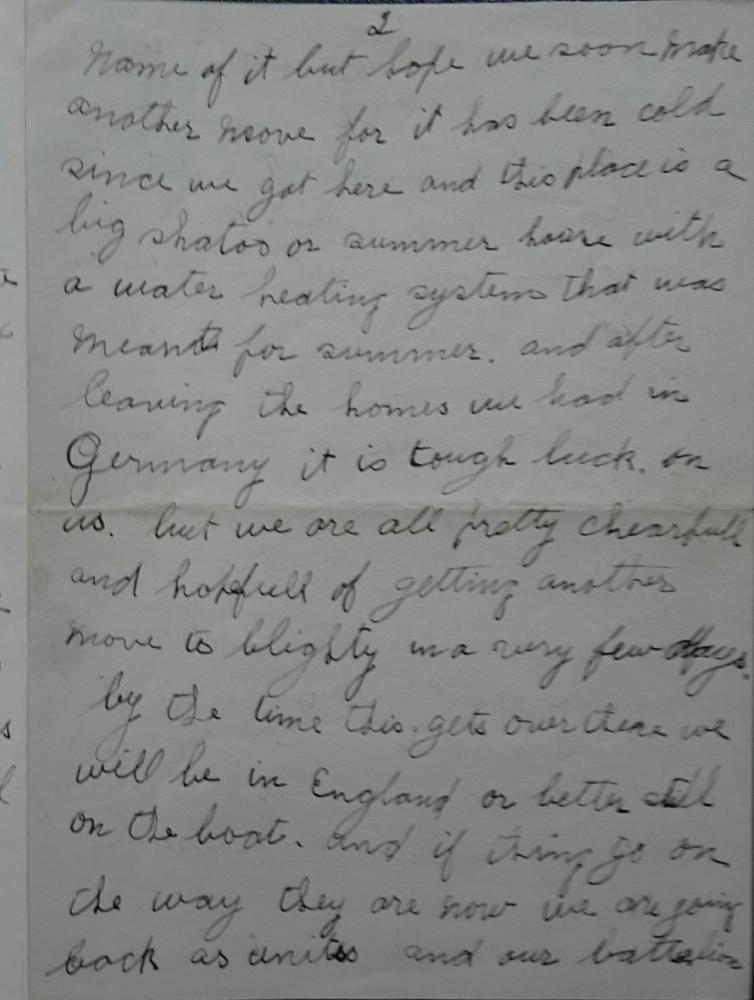 2
name of it but hope we soon make
another move for it has been cold
since we got here and this place is a
big shatoo or summer house with
a water heating system that was
meant for summer. and after
leaving the homes we had in
Germany it is tough luck. on
us. but we are all pretty chearfull
and hopefull of getting another
move to blighty in a very few days.
by the time this gets over there we
will be in England or better still
on the boat. and if thing go on
the way they are now we are going
back as units and our battalion